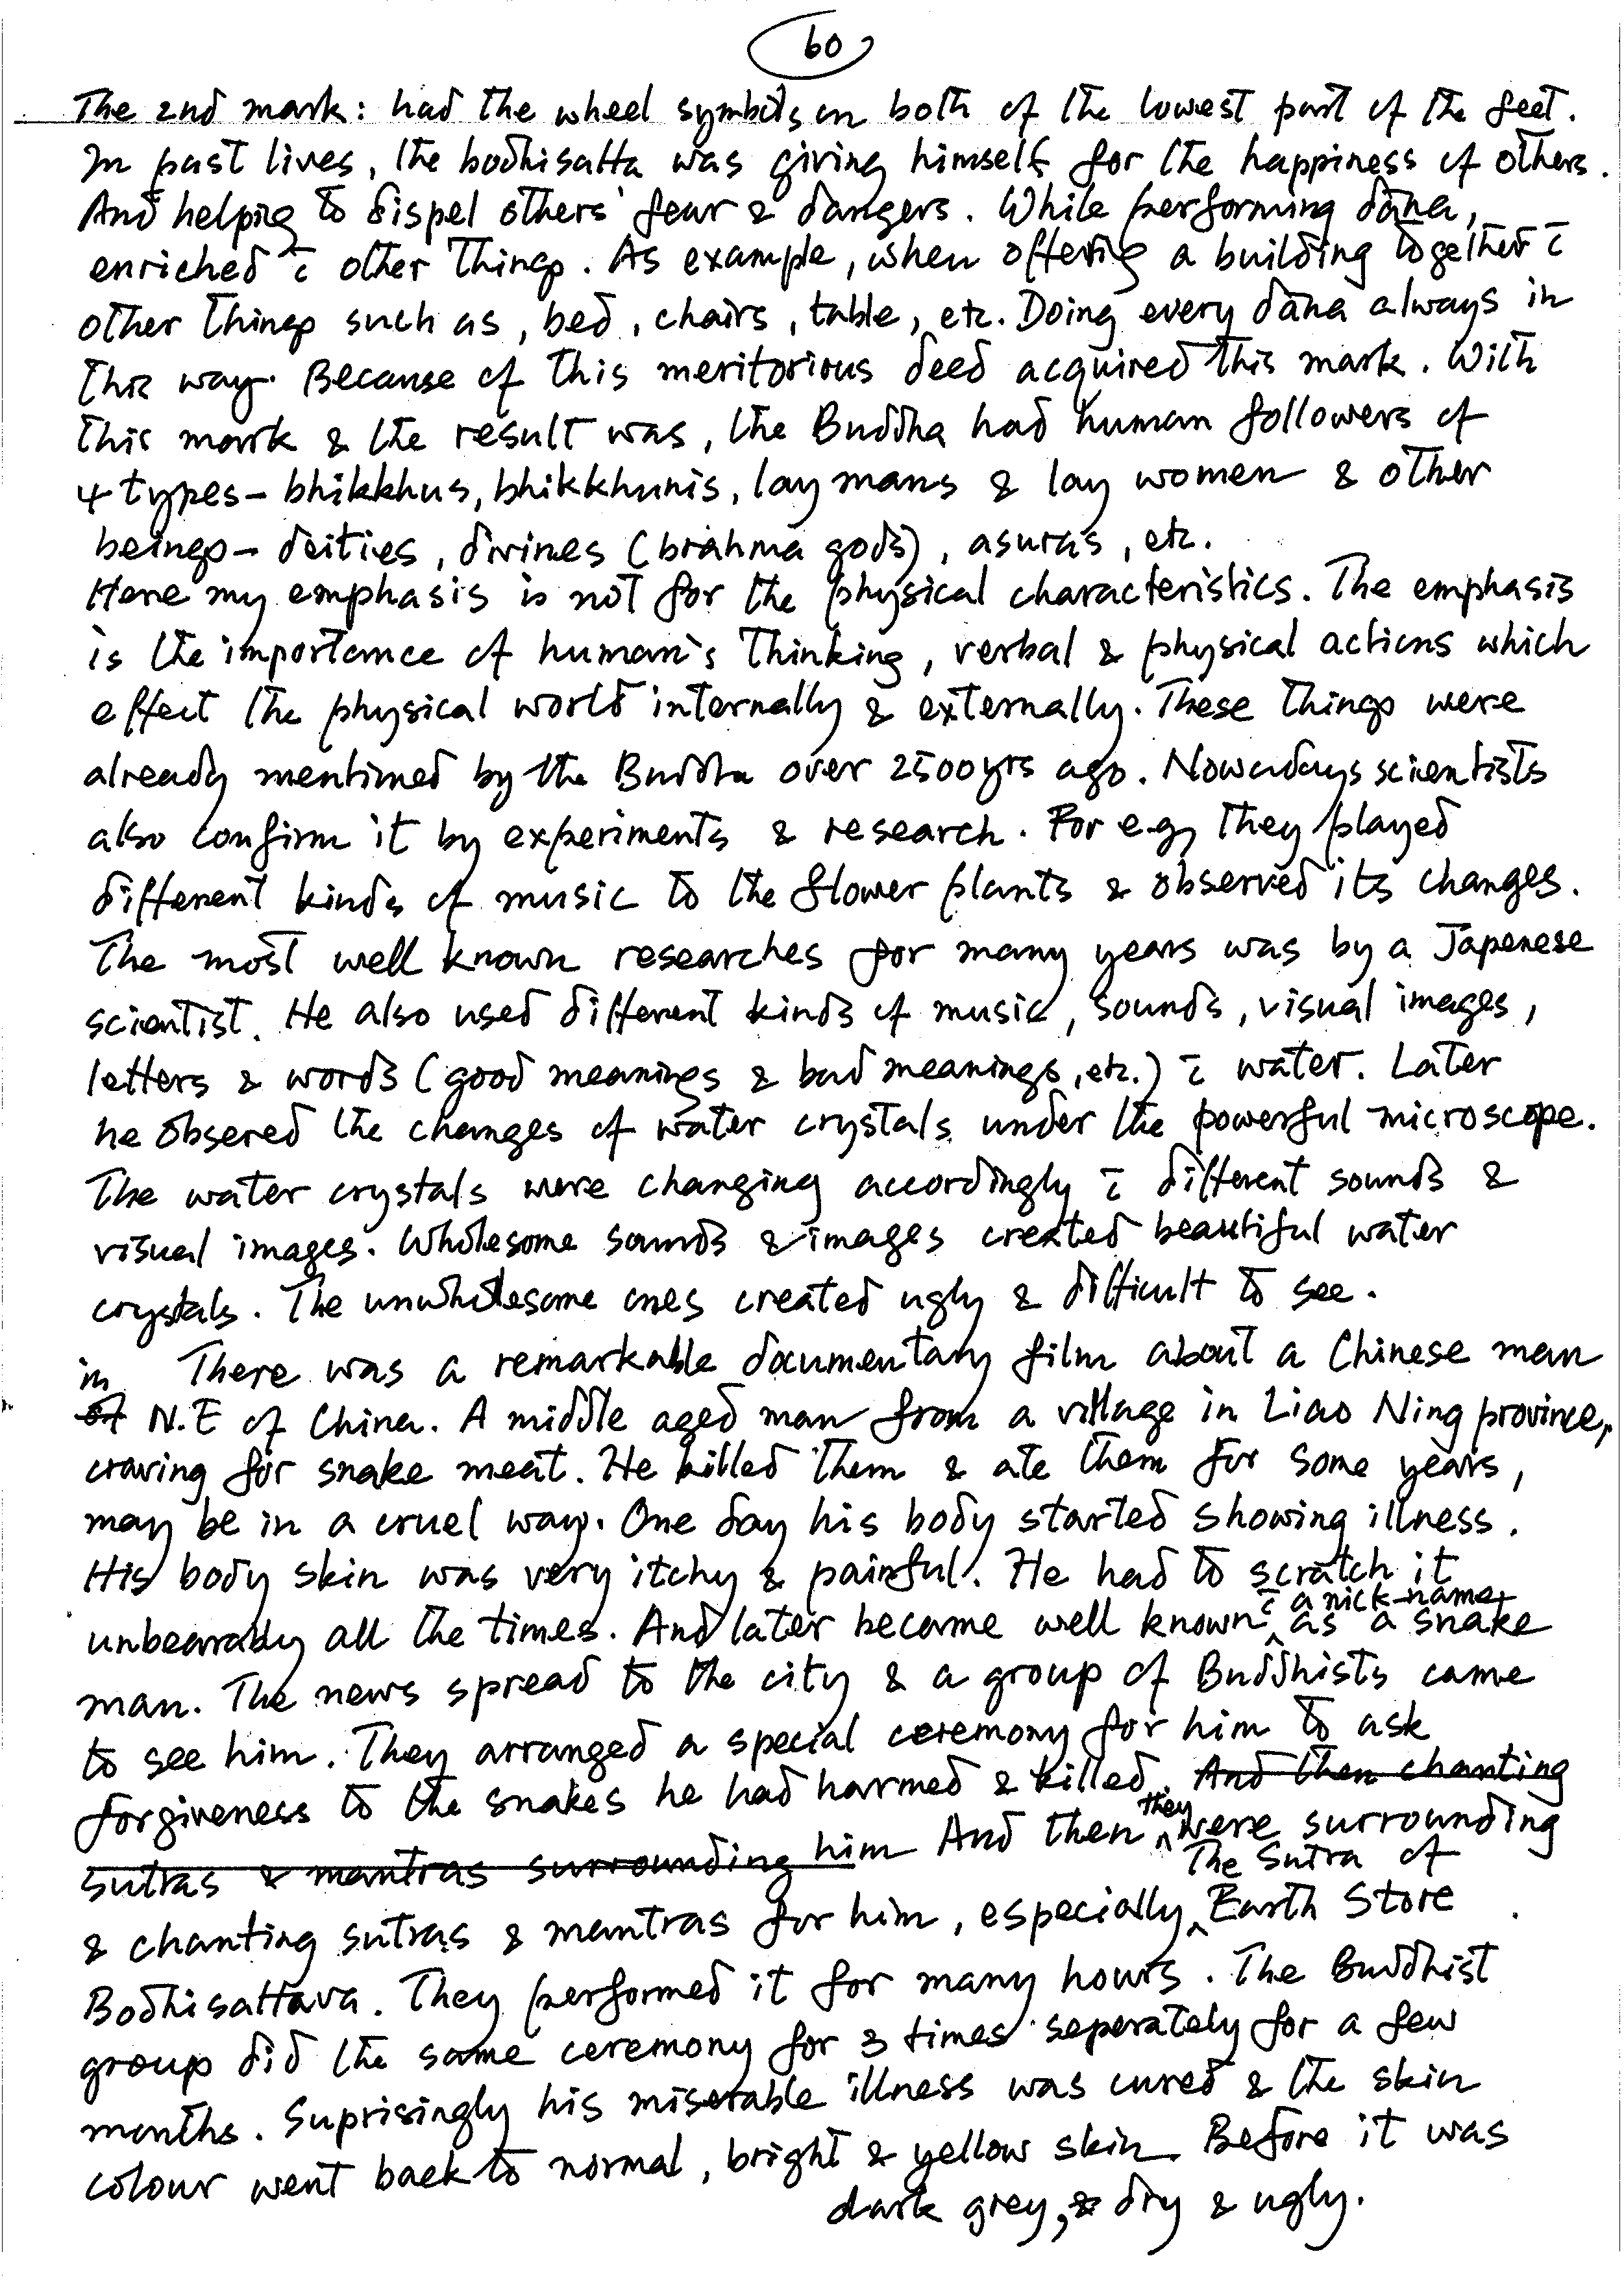 60
The 2nd mark: had the wheel symbols on both of the lowest part of the feet.
In past lives, the bodhisatta was giving himself for the happiness of others.
And helping to dispel others' fear & dangers. While performing dāna,
enriched c̄ other things. As example, when offering a building together c̄
other things such as, bed, chairs, table, etc. Doing every dāna always in
this way. Because of this meritorious deed acquired this mark. With
this mark & the result was, the Buddha had human followers of
4 types – bhikkhus, bhikkhunis, lay mans & lay women & other
beings – deities, divines (brahma gods), asuras, etc.
Here my emphasis is not for the physical characteristics. The emphasis
is the importance of human's thinking, verbal & physical actions which
effect the physical world internally & externally. These things were
already mentioned by the Buddha over 2500yrs ago. Nowadays scientists
also confirm it by experiments & research. For e.g, they played
different kinds of music to the flower plants & observed its changes.
The most well known researches for many years was by a Japenese
scientist. He also used different kinds of music, sounds, visual images,
letters & words (good meanings & bad meanings, etc.) c̄ water. Later
he obsered the changes of water crystals under the powerful microscope.
The water crystals were changing accordingly c̄ different sounds &
visual images. Wholesome sounds & images created beautiful water
crystals. The unwholesome ones created ugly & difficult to see.
in There was a remarkable documentary film about a Chinese man
of N.E of China. A middle aged man from a village in Liao Ning province,
craving for snake meat. He killed them & ate them for some years,
may be in a cruel way. One day his body started showing illness.
His body skin was very itchy & painful. He had to scratch it
c̄ a nick-name
unbearably all the times. And later became well known as a snake
man. The news spread to the city & a group of Buddhists came
to see him. They arranged a special ceremony for him to ask
forgiveness to the snakes he had harmed & killed. And then chanting
they
sutras & mantras surrounding him And then were surrounding
The Sutra of
& chanting sutras & mantras for him, especially Earth Store
Bodhisattava. They performed it for many hours. The Buddhist
group did the same ceremony for 3 times seperately for a few
months. Suprisingly his miserable illness was cured & the skin
colour went back to normal, bright & yellow skin. Before it was
dark grey, & dry & ugly.